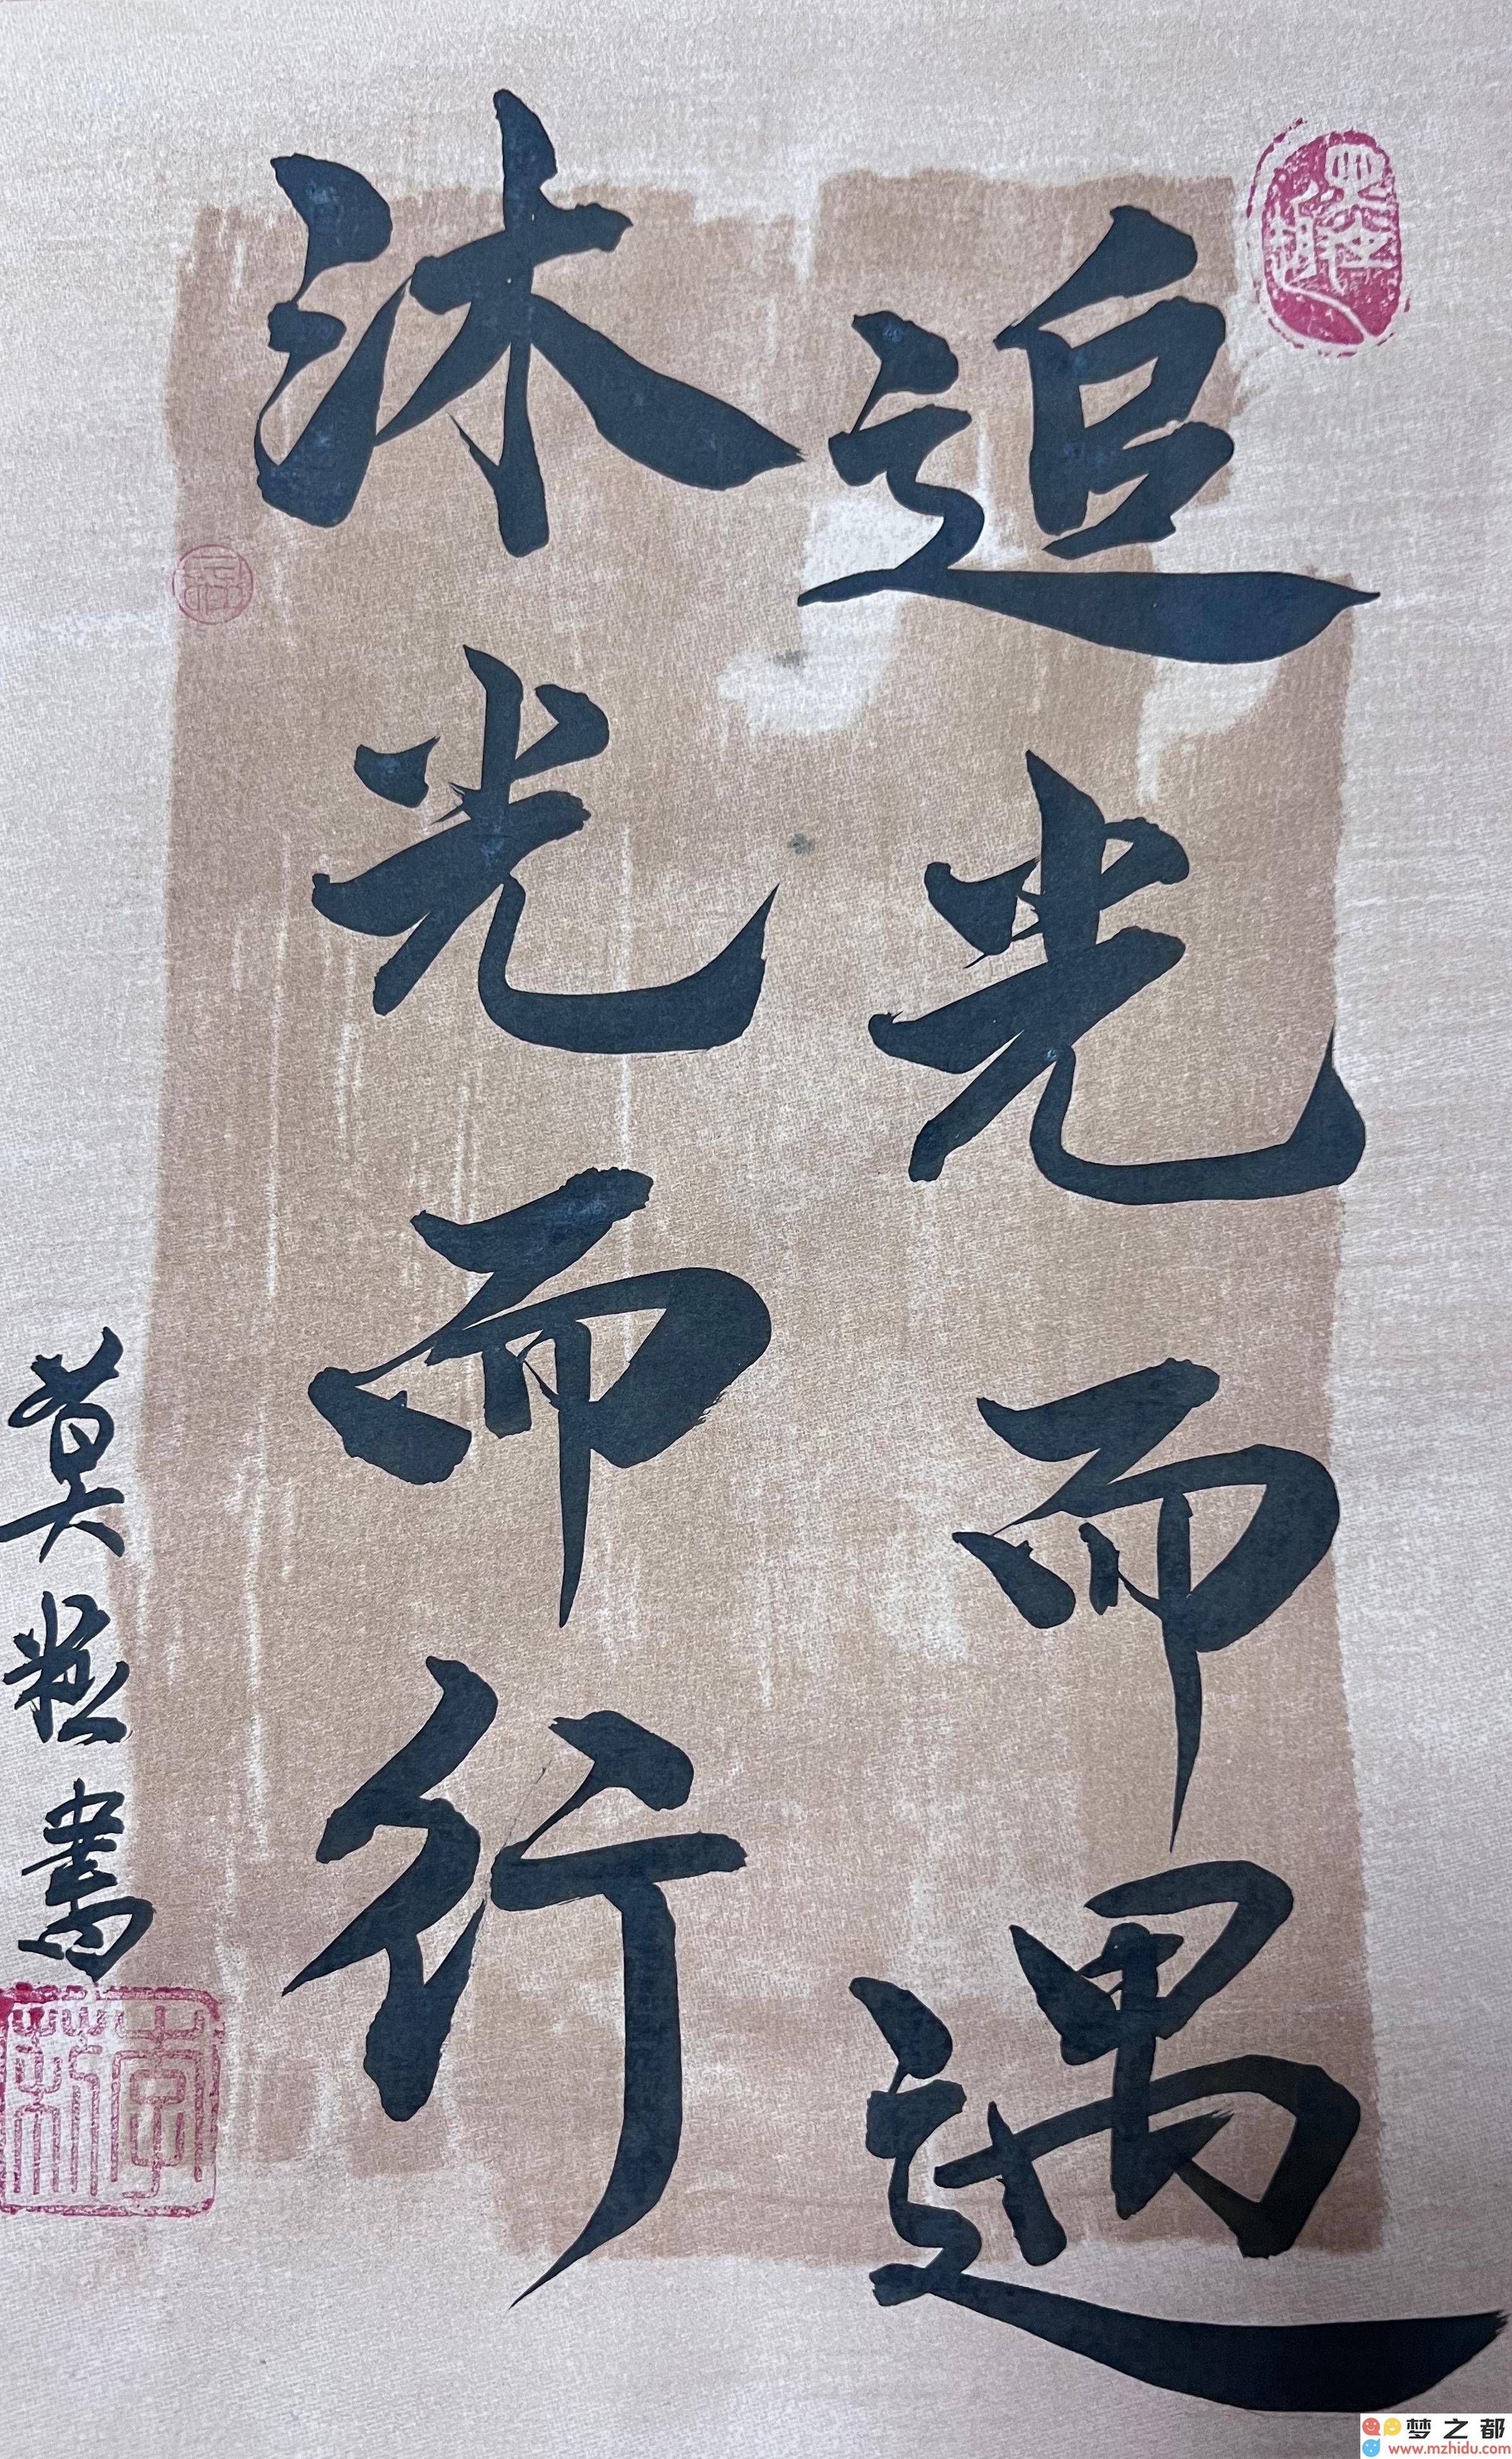 追光而遇
沐光而行
莫凝書
梦之都
www.mzhidu.com